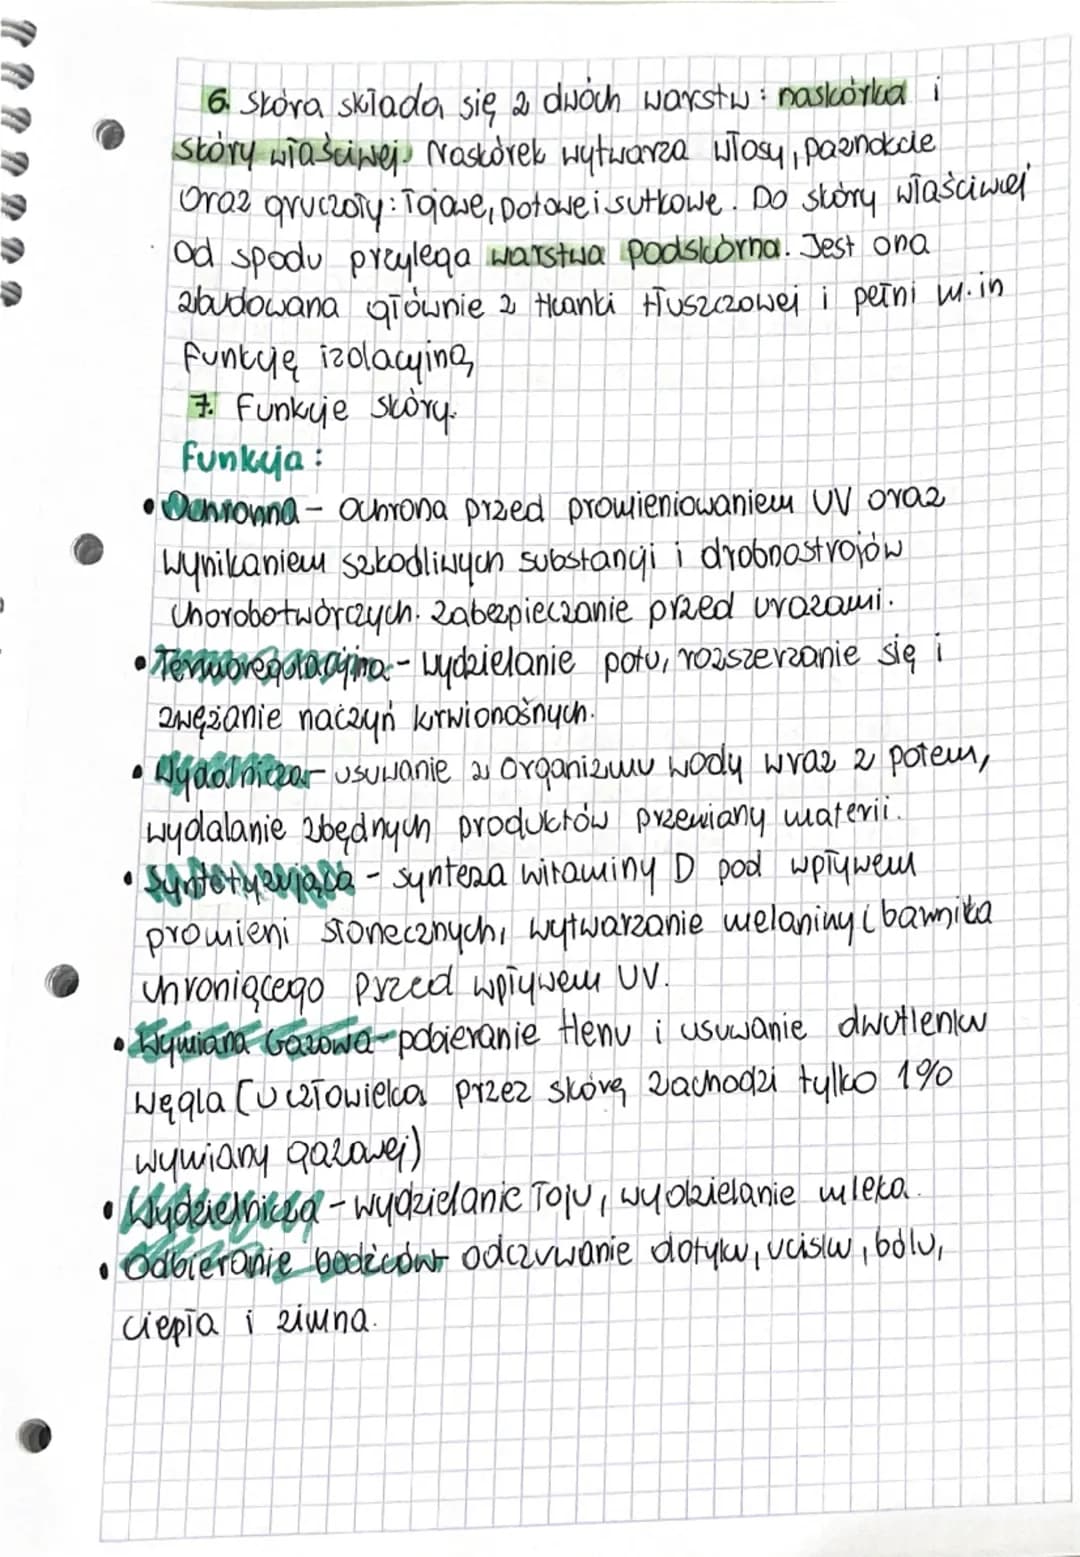 6. Skóra składa się z dwóch warstw: naskórka i
skóry właściwej. Naskórek wytwarza włosy, paznokcie
oraz gruczoły: łojowe, potowe i sutkowe. Do skóry właściwej
od spodu przylega warstwa podskórna. Jest ona
zbudowana głównie z tkanki tłuszczowej i pełni m.in
funkcję izolacyjną
7. Funkcje skóry.
Funkcja:
• Ochronna - ochrona przed prowieniowaniem UV oraz
wynikaniem szkodliwych substancji i drobnostrojów
chorobotwórczych. Zabezpieczanie przed urazami.
• Termoregulacyjna - wydzielanie potu, rozszerzanie się i
zwężanie naczyń krwionośnych.
• Wydalnicza - usuwanie z organizmu wody wraz z potem,
wydalanie zbędnych produktów przemiany materii.
• Syntetyzująca - synteza witaminy D pod wpływem
promieni słonecznych, wytwarzanie melaniny (barwnika
chroniącego przed wpływem UV.
• Wymiana Gazowa - pobieranie tlenu i usuwanie dwutlenku
węgla (u człowieka przez skórę zachodzi tylko 1%
wymiany gazowej)
• Wydzielnicza - wydzielanie łoju, wydzielanie mleka.
• Odbieranie bodźców - odczuwanie dotyku, ucisku, bólu,
ciepła i zimna.